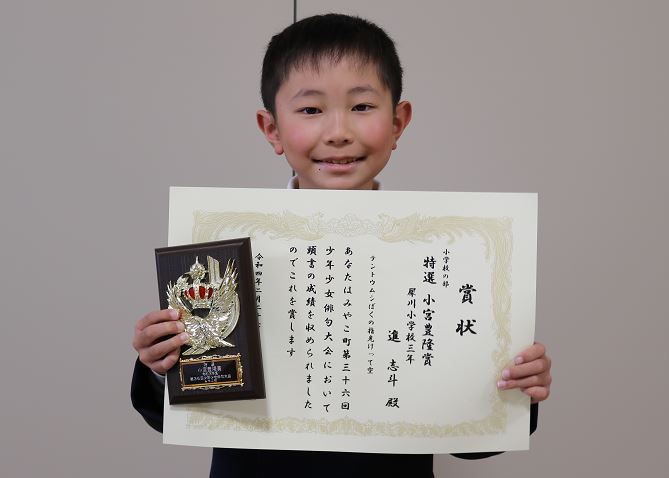 賞状
小学校の部
特選 小宮豊隆賞
犀川小学校三年
進 志斗 殿
テントウムシぼくの指先けって空
あなたはみやこ町第三十六回
少年少女俳句大会において
頭書の成績を収められました
のでこれを賞します
令和四年二月
小宮豊隆賞